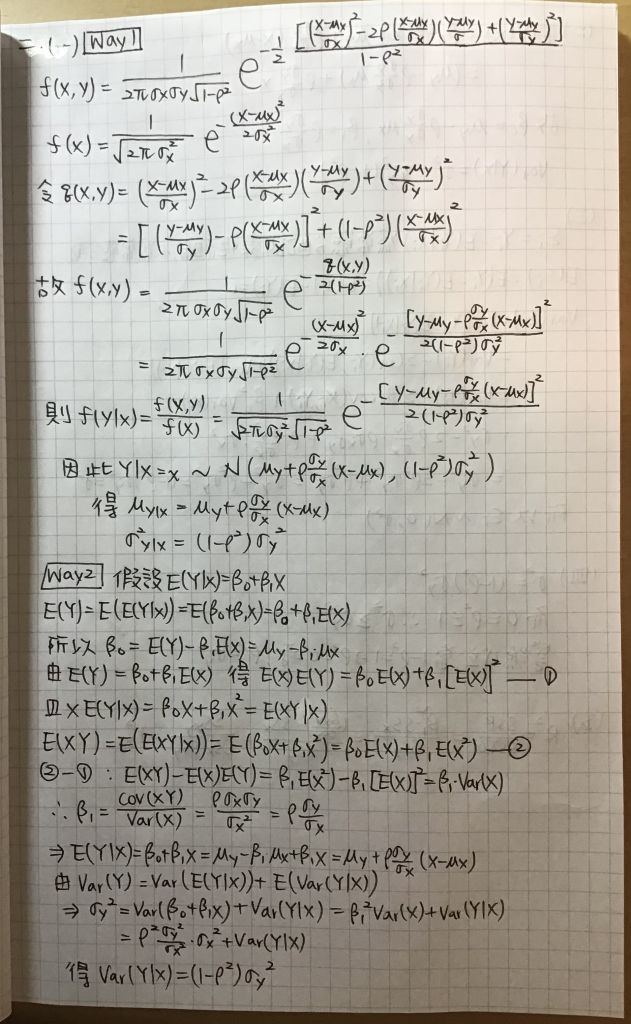 二.(一) Way1
f(x,y) = 1/(2πσxσy√(1-ρ²)) e^{-1/2 [((x-μx)/σx)² - 2ρ((x-μx)/σx)((y-μy)/σ) + ((y-μy)/σy)²]/(1-ρ²)}
f(x) = 1/√(2πσx²) e^{-(x-μx)²/2σx²}
令 g(x,y) = ((x-μx)/σx)² - 2ρ((x-μx)/σx)((y-μy)/σy) + ((y-μy)/σy)²
= [((y-μy)/σy) - ρ((x-μx)/σx)]² + (1-ρ²)((x-μx)/σx)²
故 f(x,y) = 1/(2πσxσy√(1-ρ²)) e^{-g(x,y)/2(1-ρ²)}
= 1/(2πσxσy√(1-ρ²)) e^{-(x-μx)²/2σx} · e^{-[y-μy-ρ(σy/σx)(x-μx)]²/2(1-ρ²)σy²}
則 f(Y|x) = f(x,y)/f(x) = 1/(√(2πσy²)√(1-ρ²)) e^{-[y-μy-ρ(σy/σx)(x-μx)]²/2(1-ρ²)σy²}
因此 Y|X=x ~ N(μy+ρ(σy/σx)(x-μx), (1-ρ²)σy²)
得 μY|x = μy+ρ(σy/σx)(x-μx)
σ²Y|x = (1-ρ²)σy²
Way2 假設 E(Y|X)=β₀+β₁X
E(Y)=E(E(Y|X))=E(β₀+β₁X)=β₀+β₁E(X)
所以 β₀=E(Y)-β₁E(X)=μy-β₁μx
由 E(Y)=β₀+β₁E(X) 得 E(X)E(Y)=β₀E(X)+β₁[E(X)]² — ①
且 XE(Y|X)=β₀X+β₁X²=E(XY|X)
E(XY)=E(E(XY|X))=E(β₀X+β₁X²)=β₀E(X)+β₁E(X²) — ②
②-①: E(XY)-E(X)E(Y)=β₁E(X²)-β₁[E(X)]²=β₁·Var(X)
∴ β₁ = cov(XY)/Var(X) = ρσxσy/σx² = ρ σy/σx
⇒ E(Y|X)=β₀+β₁X=μy-β₁μx+β₁X=μy+ρ(σy/σx)(x-μx)
由 Var(Y)=Var(E(Y|X))+E(Var(Y|X))
⇒ σy²=Var(β₀+β₁X)+Var(Y|X)=β₁²Var(X)+Var(Y|X)
= ρ²(σy²/σx²)·σx²+Var(Y|X)
得 Var(Y|X)=(1-ρ²)σy²